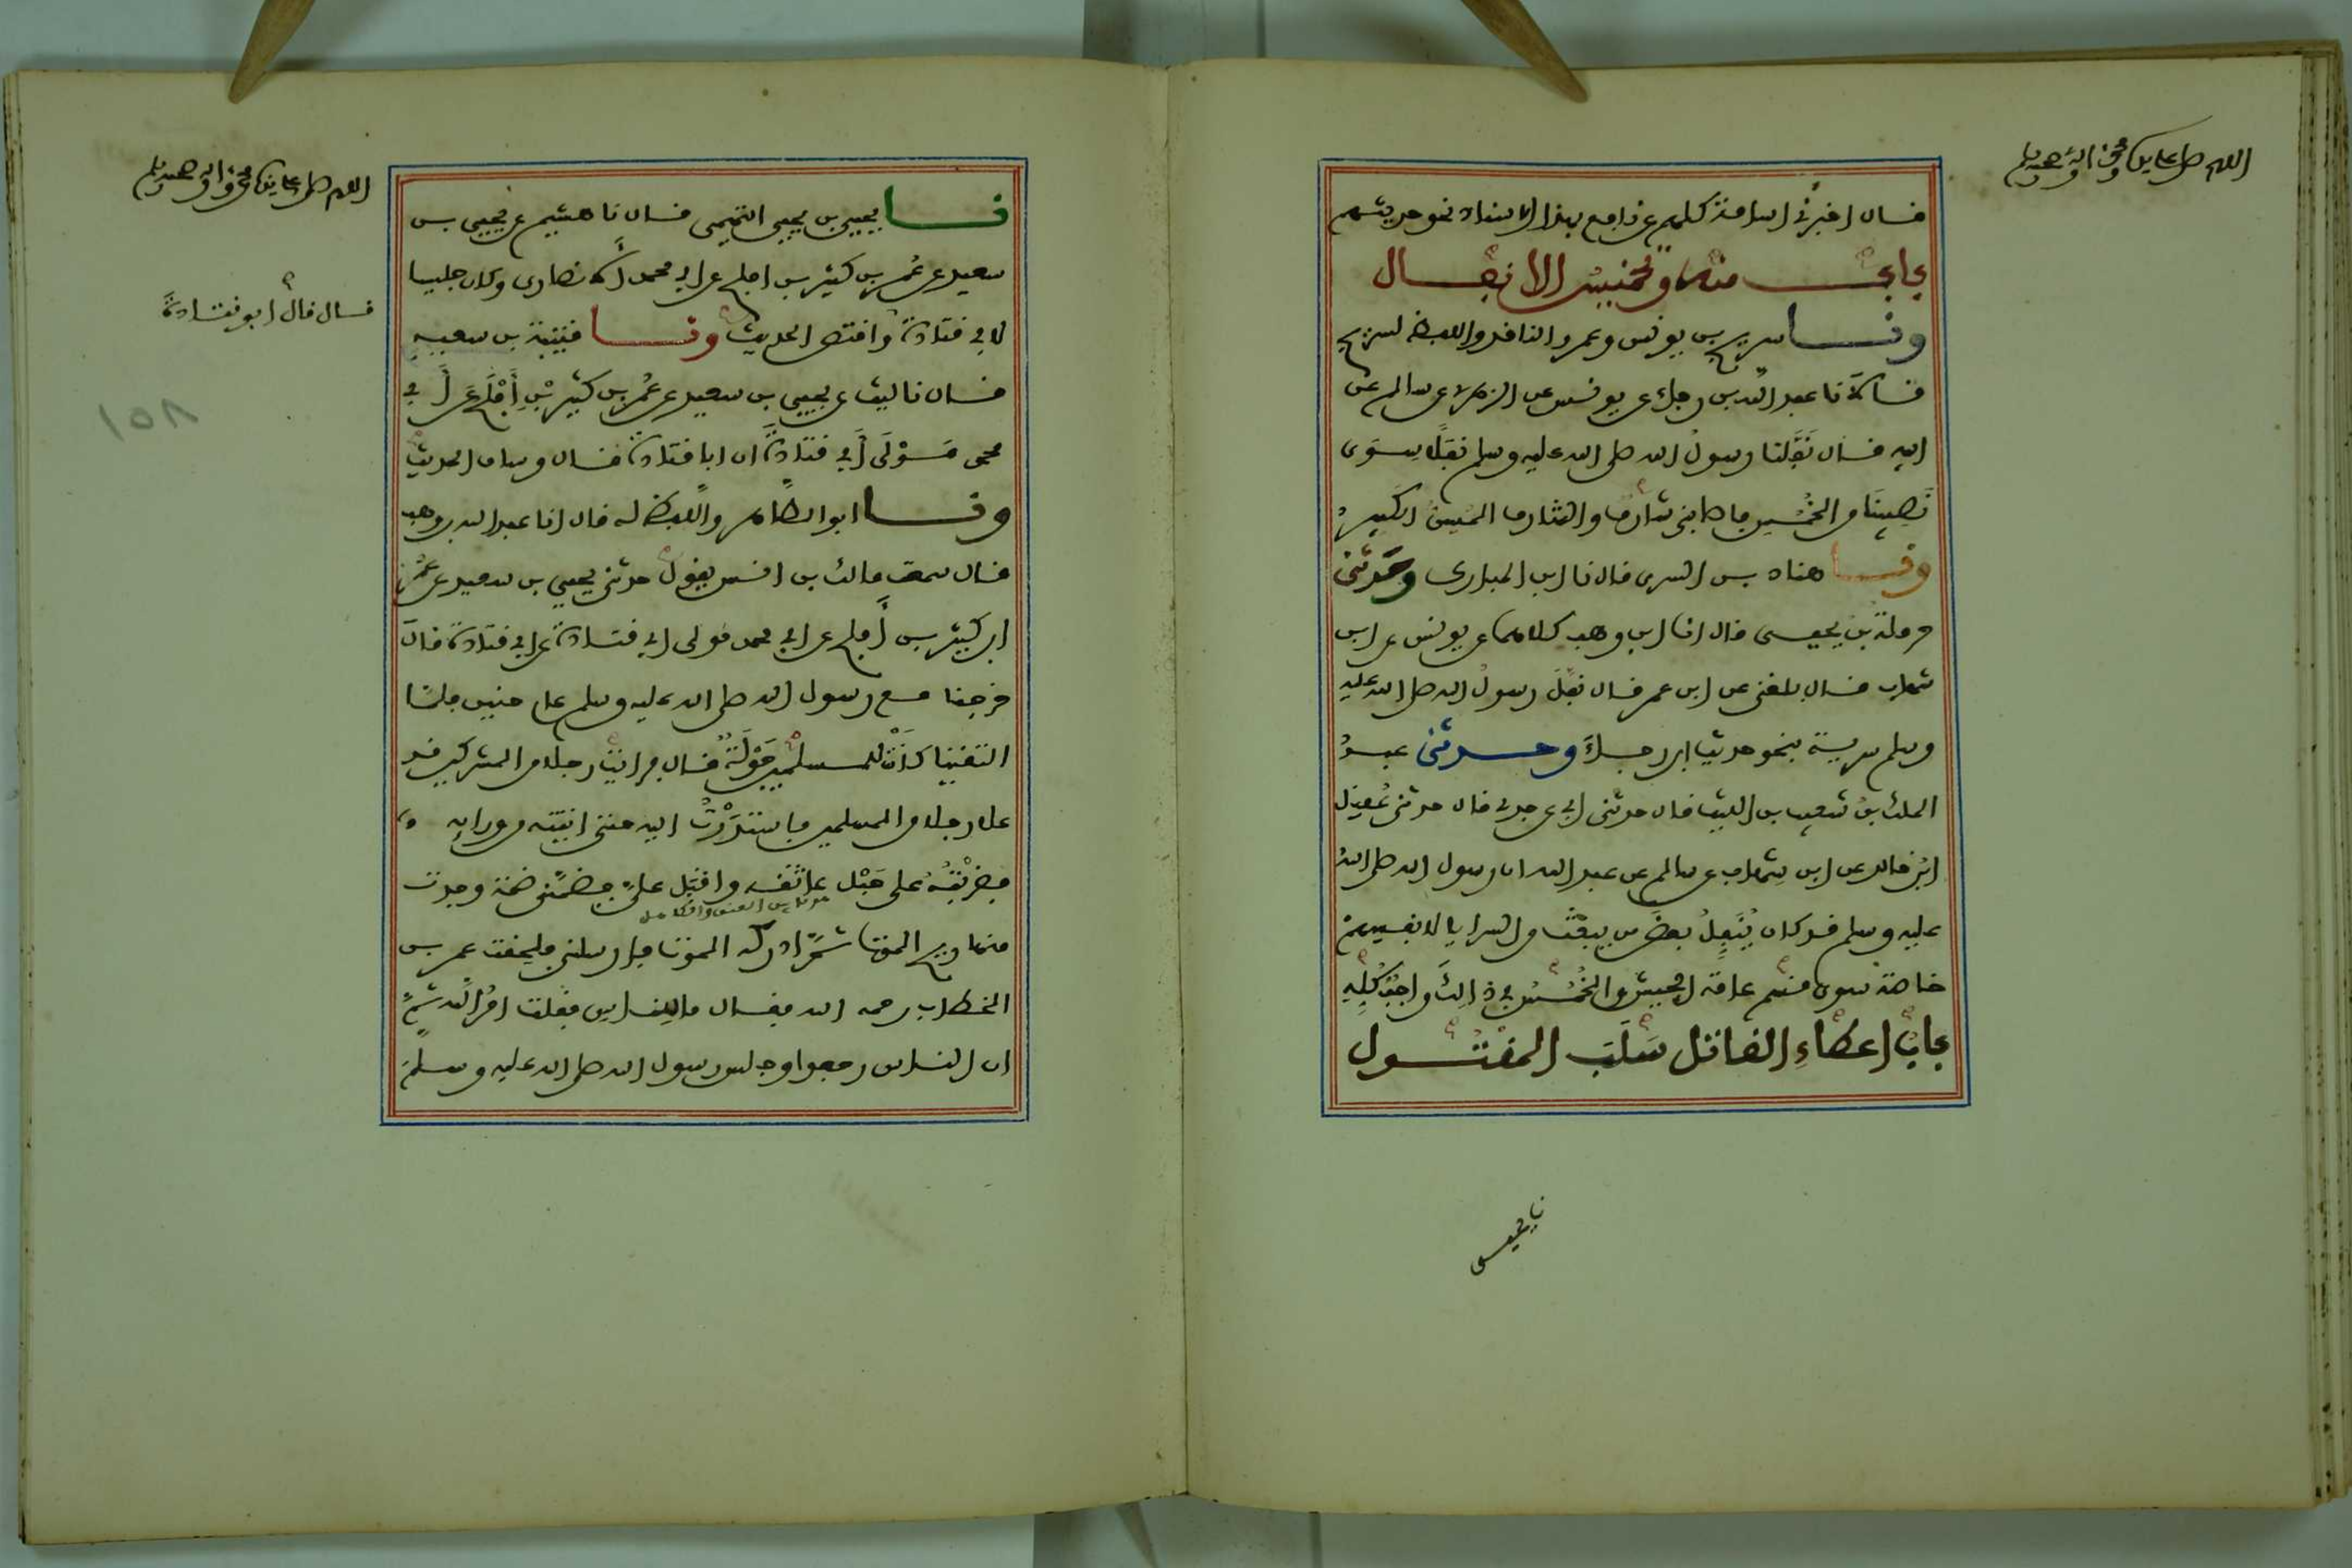 اللهم صل على سيدنا محمد واله وصحبه وسلم
قال اخبرنى اسامة كلهم عن نافع بهذا الاسناد نحو حديثهم
باب منه وتخميس الانفال
ونا سريج بن يونس وعمرو الناقد واللفظ لسريج
قالا نا عبد الله بن رجاء عن يونس عن الزهرى عن سالم عن
ابيه قال نَفَّلنا رسولُ الله صلى الله عليه وسلم نفلًا سِوَى
نَصِيبنَا من الخُمُس فاصابنى شارفٌ والشارف المسن الكبيرُ
ونا هناد بن السرى قال نا ابن المبارك وحَدثنى
حرملة بن يحيى قال انا ابن وهب كلاهما عن يونس عن ابن
شهاب قال بلغنى عن ابن عمر قال نفل رسولُ الله صلى الله عليه
وسلم سرية بنحو حديث ابن رجاء وحدثنى عبدُ
الملك بنُ شعيب بن الليث قال حدثنى ابى عن جدى قال حدثنى عُقَيل
ابنُ خالد عن ابن شِهاب عن سالم عن عبد الله ان رسول الله صلى اللهُ
عليه وسلم قد كان يُنَفِّلُ بعضَ من يبعَثُ من السرايا لانفسهم
خاصة سوى قسم عامة الجيش والخُمُسُ فى ذالك واجبٌ كُلِّهِ
بابُ اعطاءِ القاتل سَلَبَ المقتول
نا يحيى
اللهم صل على سيدنا محمد واله وصحبه وسلم
نا يحيى بن يحيى التميمى قال نا هشيم عن يحيى بن
سعيد عن عُمر بن كثير بن افلح عن ابى محمد الأنصارى وكان جليسا
لابى قتادة واقتص الحديث ونا قتيبة بن سعيد
قال قال ابو قتادةَ
قال نا ليث عن يحيى بن سعيد عن عُمر بن كثير بْنِ أَفْلَح عن أَبى
محمد مَوْلَى أَبى قتادةَ ان ابا قتادة قال وساق الحديث
ونا ابو الطاهر واللفظ له قال انا عبد الله بن وهب
قال سمعت مالك بن انس يقول حدثنى يحيى بن سعيد عن عُمَرَ
ابن كثير بن أَفلح عن ابى محمد مولى ابى قتادة عن ابى قتادة قال
خرجنا مع رسول الله صلى الله عليه وسلم عام حنين فلمّا
التقينا كانَتْ للمسلمين جَوْلَةٌ قال فرايت رجلا من المشركين قد
علا رجلا من المسلمين فاستدَرْتُ اليه حتى اتيته من ورايه
فضرَبْتُهُ على حَبْل عاتقه واقبَل علىَّ فضمَّنى ضمة وجدت
ما بين العنق والكاهل
منها ريح الموت ثمَّ ادركه الموت فارسلنى فلحِقت عمر بن
الخطاب رحمه الله فقال ما للناس فقلت امرُ الله ثمَّ
ان الناس رجعوا وجلس رسول الله صلى الله عليه وسلمَ
١٥٨